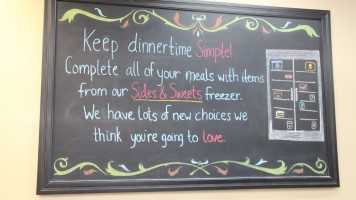 Keep dinnertime Simple!
Complete all of your meals with items
from our Sides & Sweets freezer.
We have lots of new choices we
think you're going to love.